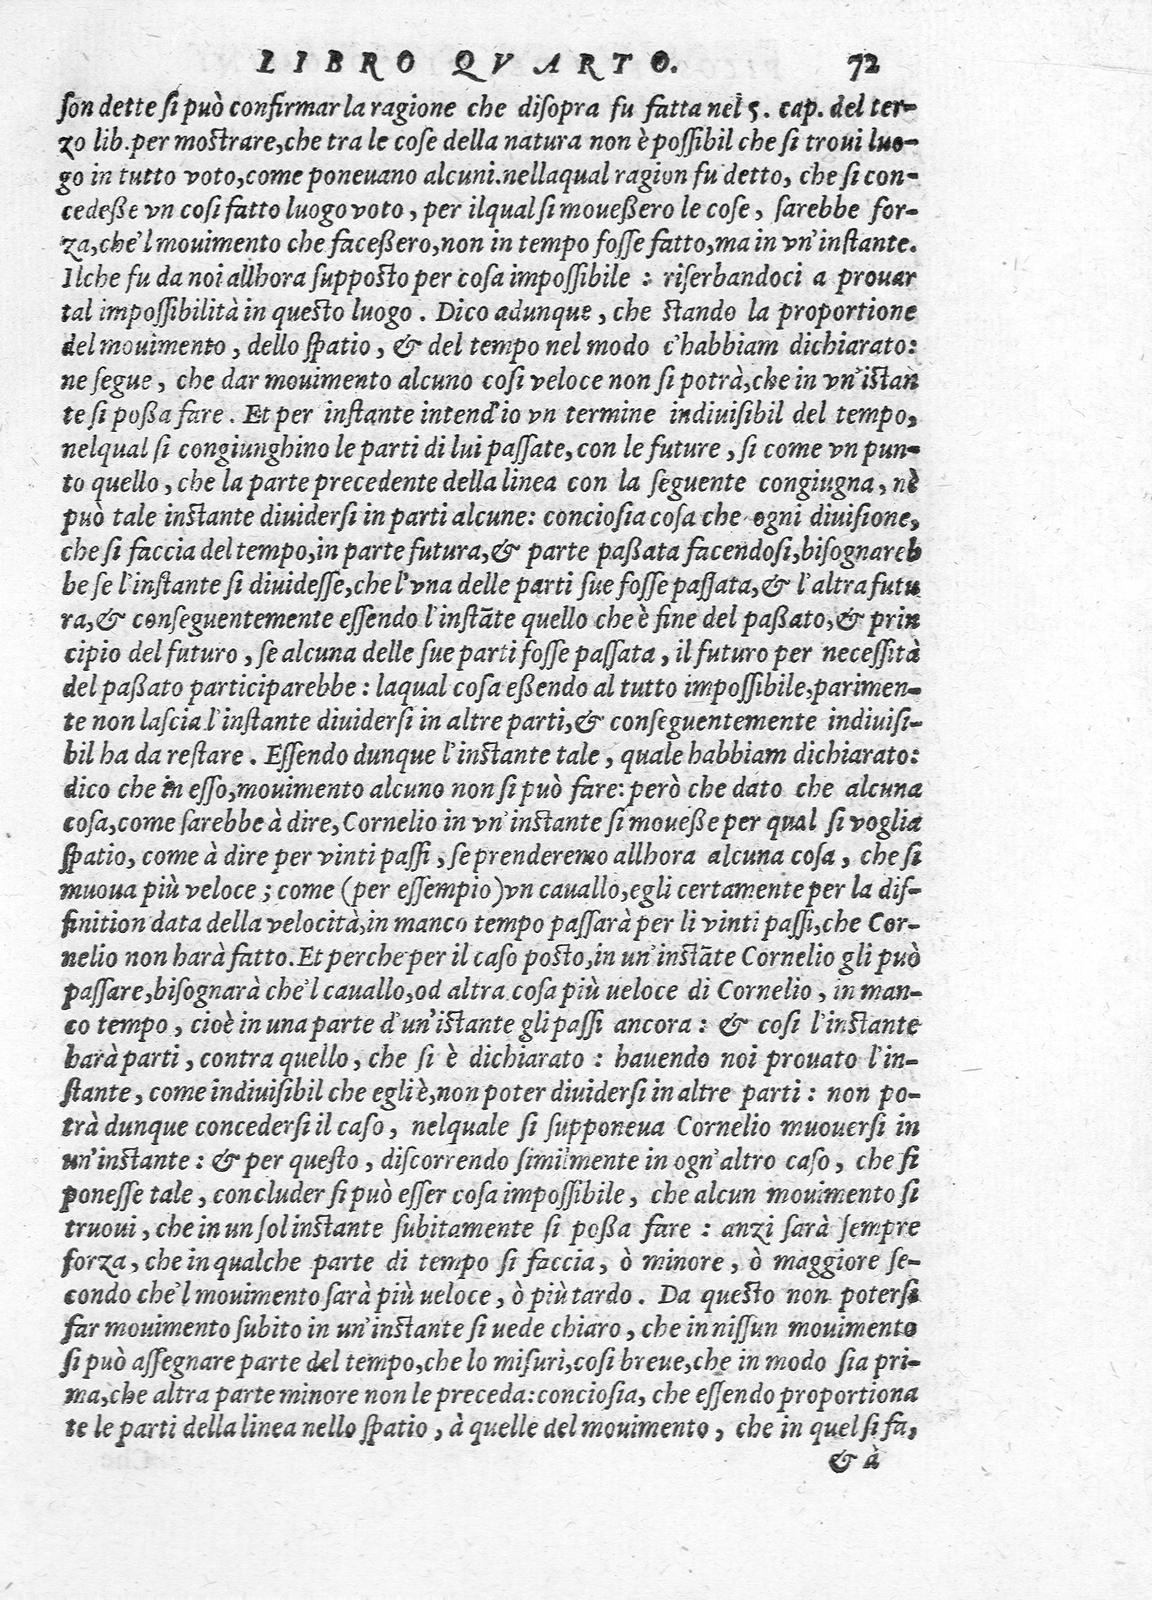 LIBRO QVARTO. 72
ſon dette ſi può confirmar la ragione che diſopra fu fatta nel 5. cap. del ter-
zo lib. per moſtrare, che tra le coſe della natura non è poſſibil che ſi troui luo-
go in tutto voto, come poneuano alcuni. nellaqual ragion fu detto, che ſi con-
cedeße vn coſi fatto luogo voto, per ilqual ſi moueßero le coſe, ſarebbe for-
za, che'l mouimento che faceßero, non in tempo foſſe fatto, ma in vn'inſtante.
Ilche fu da noi allhora ſuppoſto per coſa impoſſibile : riſerbandoci a prouar
tal impoſſibilità in queſto luogo. Dico adunque, che ſtando la proportione
del mouimento, dello ſpatio, & del tempo nel modo c'habbiam dichiarato:
ne ſegue, che dar mouimento alcuno coſi veloce non ſi potrà, che in vn'iſtan
te ſi poßa fare. Et per inſtante intend'io vn termine indiuiſibil del tempo,
nelqual ſi congiunghino le parti di lui paſſate, con le future, ſi come vn pun-
to quello, che la parte precedente della linea con la ſeguente congiugna, nè
può tale inſtante diuiderſi in parti alcune: concioſia coſa che ogni diuiſione,
che ſi faccia del tempo, in parte futura, & parte paßata facendoſi, biſognareb
be ſe l'inſtante ſi diuideſſe, che l'vna delle parti ſue foſſe paſſata, & l'altra futu
ra, & conſeguentemente eſſendo l'inſtãte quello che è fine del paßato, & prin
cipio del futuro, ſe alcuna delle ſue parti foſſe paſſata, il futuro per neceſſità
del paßato participarebbe : laqual coſa eßendo al tutto impoſſibile, parimen-
te non laſcia l'inſtante diuiderſi in altre parti, & conſeguentemente indiuiſi-
bil ha da reſtare. Eſſendo dunque l'inſtante tale, quale habbiam dichiarato:
dico che in eſſo, mouimento alcuno non ſi può fare: però che dato che alcuna
coſa, come ſarebbe à dire, Cornelio in vn'inſtante ſi moueße per qual ſi voglia
ſpatio, come à dire per vinti paſſi, ſe prenderemo allhora alcuna coſa, che ſi
muoua più veloce ; come (per eſſempio) vn cauallo, egli certamente per la diſ-
finition data della velocità, in manco tempo paſſarà per li vinti paſſi, che Cor-
nelio non harà fatto. Et perche per il caſo poſto, in un'inſtãte Cornelio gli può
paſſare, biſognarà che'l cauallo, od altra coſa più ueloce di Cornelio, in man-
co tempo, cioè in una parte d'un'iſtante gli paſſi ancora : & coſi l'inſtante
harà parti, contra quello, che ſi è dichiarato : hauendo noi prouato l'in-
ſtante, come indiuiſibil che egli è, non poter diuiderſi in altre parti : non po-
trà dunque concederſi il caſo, nelquale ſi ſupponeua Cornelio muouerſi in
un'inſtante : & per queſto, diſcorrendo ſimilmente in ogn'altro caſo, che ſi
poneſſe tale, concluder ſi può eſſer coſa impoſſibile, che alcun mouimento ſi
truoui, che in un ſol inſtante ſubitamente ſi poßa fare : anzi ſarà ſempre
forza, che in qualche parte di tempo ſi faccia, ò minore, ò maggiore ſe-
condo che'l mouimento ſarà più ueloce, ò più tardo. Da queſto non poterſi
far mouimento ſubito in un'inſtante ſi uede chiaro, che in niſſun mouimento
ſi può aſſegnare parte del tempo, che lo miſuri, coſi breue, che in modo ſia pri-
ma, che altra parte minore non le preceda: concioſia, che eſſendo proportiona
te le parti della linea nello ſpatio, à quelle del mouimento, che in quel ſi fa,
& à